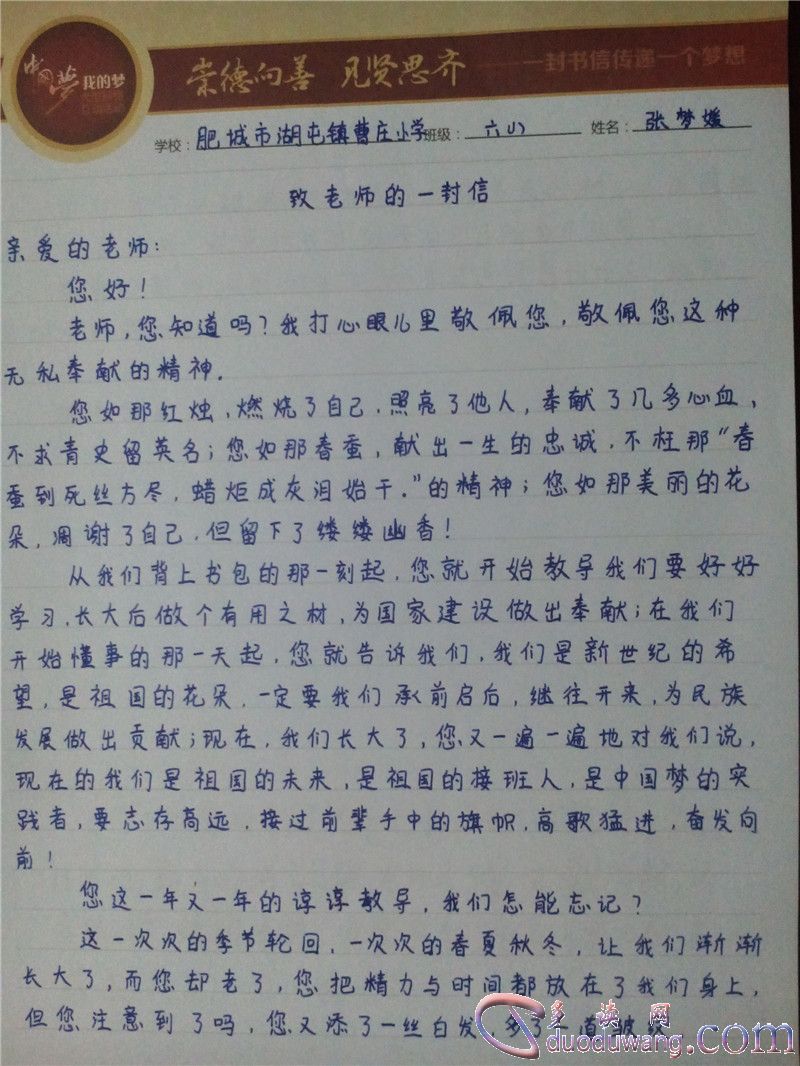 中国梦 我的梦
崇德向善 见贤思齐 ——一封书信传递一个梦想
学校：肥城市湖屯镇曹庄小学 班级：六(1) 姓名：张梦媛
致老师的一封信
亲爱的老师：
您好！
老师，您知道吗？我打心眼儿里敬佩您，敬佩您这种
无私奉献的精神。
您如那红烛，燃烧了自己，照亮了他人，奉献了几多心血，
不求青史留英名；您如那春蚕，献出一生的忠诚，不枉那“春
蚕到死丝方尽，蜡炬成灰泪始干。”的精神；您如那美丽的花
朵，凋谢了自己，但留下了缕缕幽香！
从我们背上书包的那一刻起，您就开始教导我们要好好
学习，长大后做个有用之材，为国家建设做出奉献；在我们
开始懂事的那一天起，您就告诉我们，我们是新世纪的希
望，是祖国的花朵，一定要我们承前启后，继往开来，为民族
发展做出贡献；现在，我们长大了，您又一遍一遍地对我们说，
现在的我们是祖国的未来，是祖国的接班人，是中国梦的实
践者，要志存高远，接过前辈手中的旗帜，高歌猛进，奋发向
前！
您这一年又一年的谆谆教导，我们怎能忘记？
这一次次的季节轮回，一次次的春夏秋冬，让我们渐渐
长大了，而您却老了，您把精力与时间都放在了我们身上，
但您注意到了吗，您又添了一丝白发，多了一道皱纹
多读网
duoduwang.com